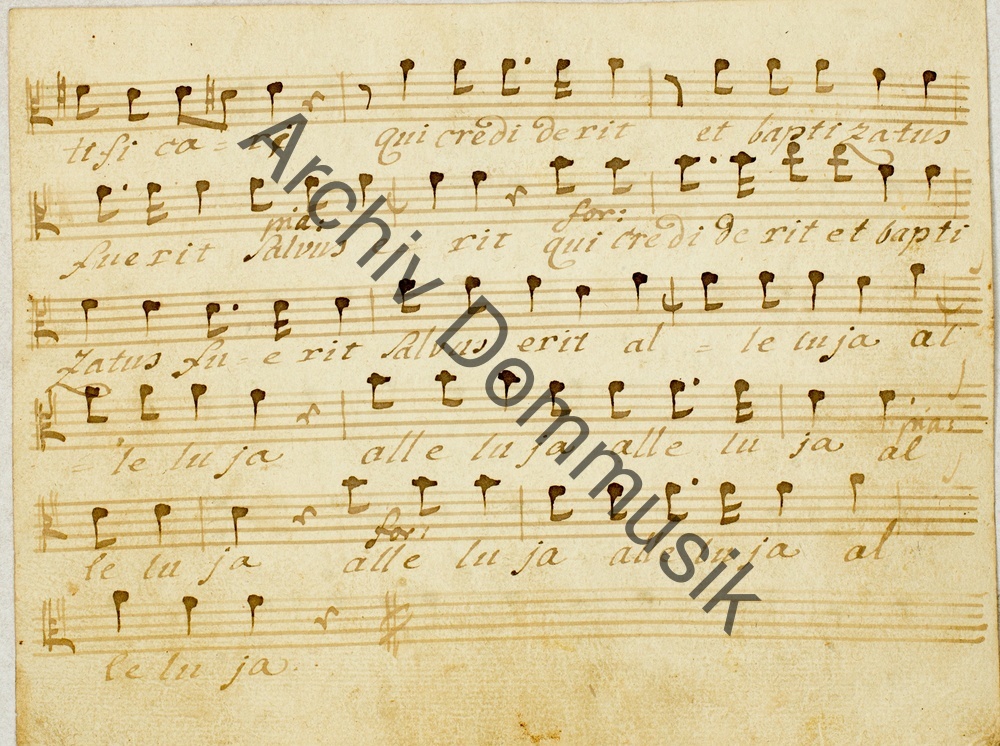 tifi ca = ri qui credi derit et baptizatus
pia: for:
fuerit salvus e = rit qui credi de rit et bapti
zatus fu = e rit salvus erit al = le luja al
pia:
= le lu ja alle lu ja alle lu ja al
for:
le lu ja alle lu ja alle lu ja al
le lu ja.
Archiv Dommusik